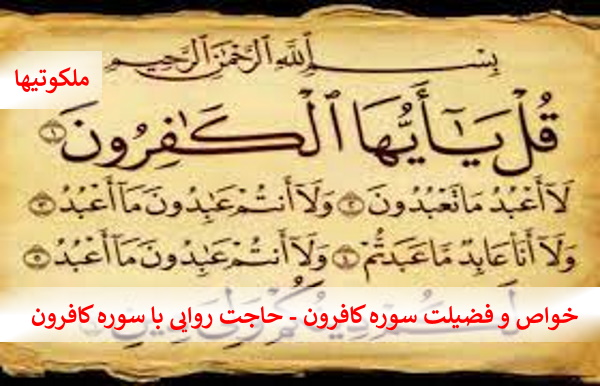 بِسْمِ ٱللَّهِ ٱلرَّحْمَٰنِ ٱلرَّحِيمِ
ملکوتیها
قُلْ يَـٰٓأَيُّهَا ٱلْكَـٰفِرُونَ ۝١
لَآ أَعْبُدُ مَا تَعْبُدُونَ ۝٢ وَلَآ أَنتُمْ عَـٰبِدُونَ مَآ أَعْبُدُ ۝٣
وَلَآ أَنَا۠ عَابِدٌ مَّا عَبَدتُّمْ ۝٤ وَلَآ أَنتُمْ عَـٰبِدُونَ مَآ أَعْبُدُ ۝٥
خواص و فضیلت سوره کافرون - حاجت روایی با سوره کافرون